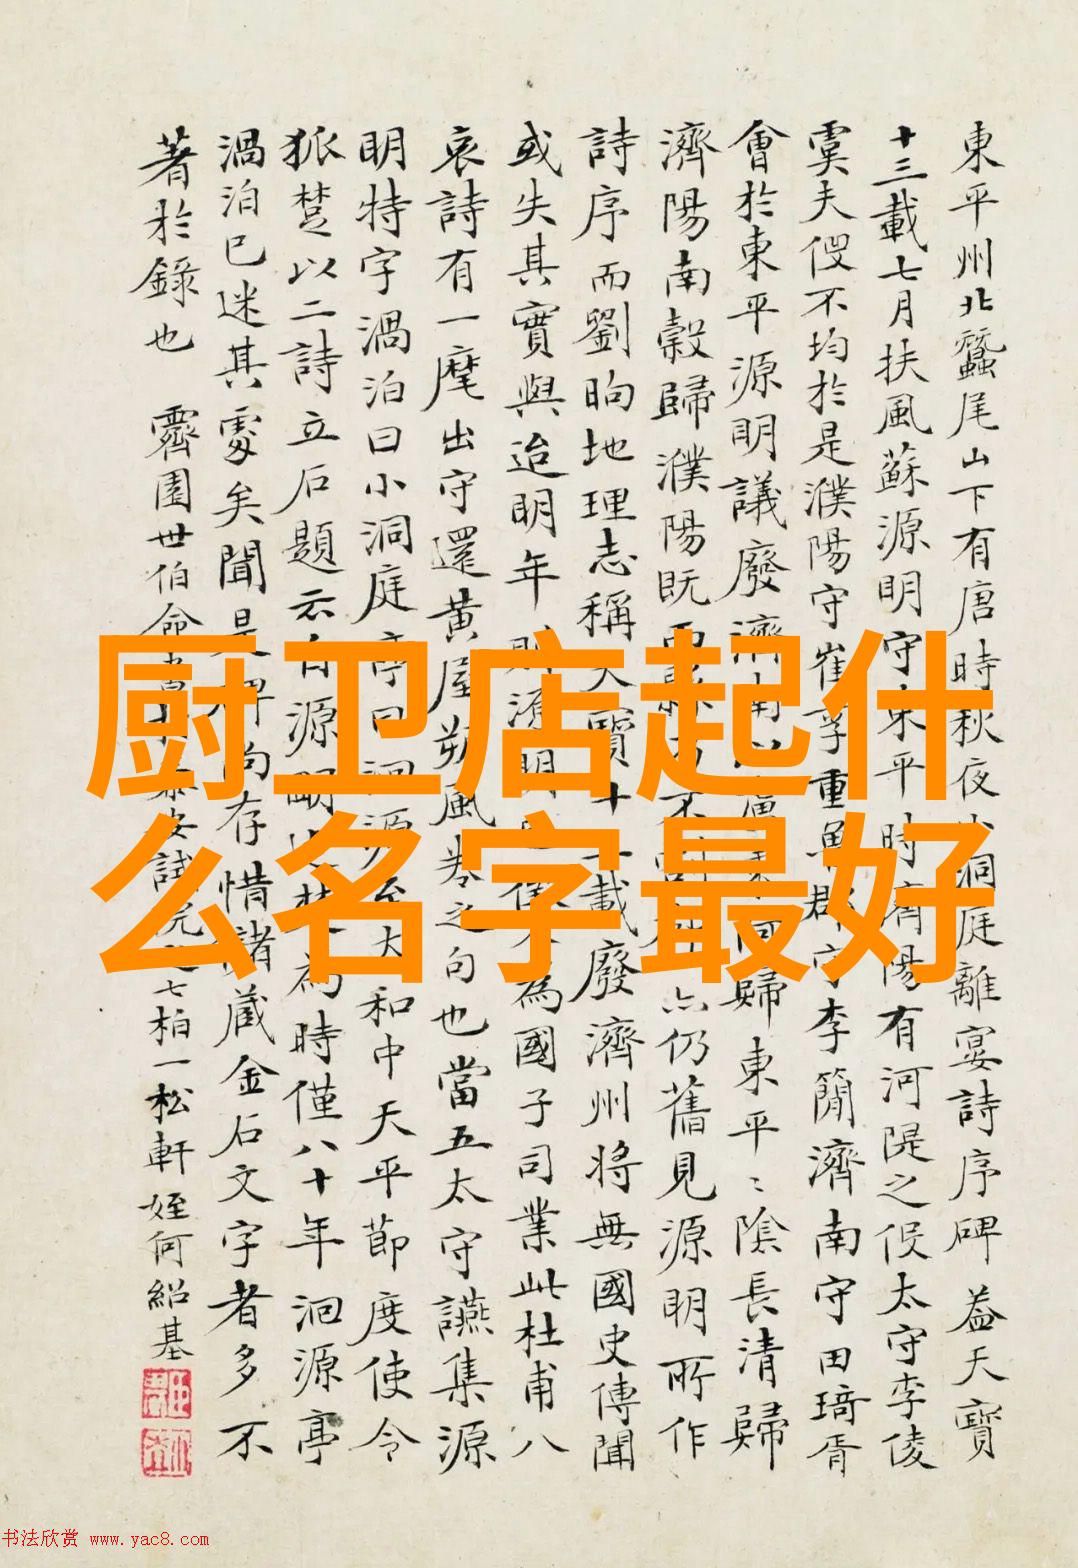 東平州北蠶尾山下有唐時秋夜小洞庭離宴詩序碑 蓋天寶
十三載七月扶風蘇源明守東平時濟陽有河隄之役太守李倰
虞夫役不均於是濮陽守崔季重魯郡守李簡濟南守田琦胥
會於東平源明議廢濟南歸東平〻陰長清歸
濟陽南穀歸濮陽既而不仍舊見源明所作
詩序而劉昫地理志稱天寶十三載廢濟州將無國史傳聞
或失其實與迨明年則源明為國子司業此杜甫八
哀詩有一麾出守還黃屋朔風卷之句也當五太守讌集源
明特字渦泊曰小洞庭亭曰洄源至大和中天平節度使令
狐楚以二詩立石題云自源明迨楚為時僅八十年洄源亭
渦泊已迷其處矣聞是碑尚存惜諸蔵金石文字者多不
著於錄也 霽園世伯命書安試院之七柏一松軒 姪何紹基
厨卫店起什
么名字最好
书法欣赏 www.yac8.com